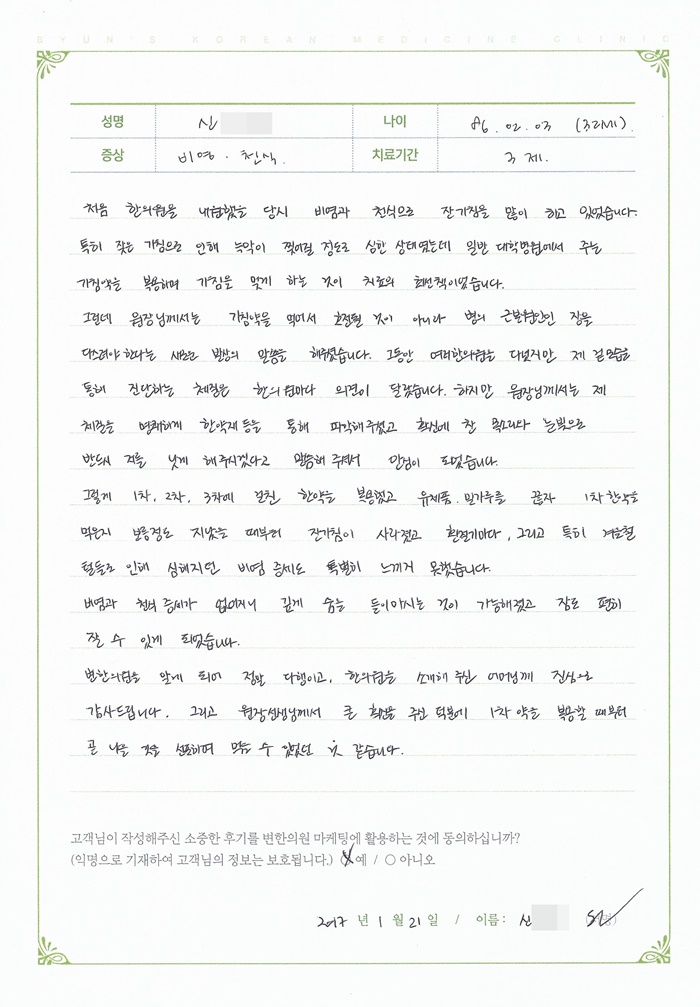 BYUN'S KOREAN MEDICINE CLINIC
성명 신 나이 86. 02. 03 (32세).
증상 비염 · 천식. 치료기간 3 제.
처음 한의원을 내원했을 당시 비염과 천식으로 잔기침을 많이 하고 있었습니다.
특히 잦은 기침으로 인해 늑막이 찢어질 정도로 심한 상태였는데 일반 대학병원에서 주는
기침약을 복용하며 기침을 멎게 하는 것이 치료의 최선책이었습니다.
그런데 원장님께서는 기침약을 먹어서 호전될 것이 아니라 병의 근본원인인 장을
다스려야 한다는 새로운 발상의 말씀을 해주셨습니다. 그동안 여러한의원을 다녔지만 제 겉모습을
통해 진단하는 체질은 한의원마다 의견이 달랐습니다. 하지만 원장님께서는 제
체질을 명쾌하게 한약재 등을 통해 파악해주셨고 확신에 찬 목소리와 눈빛으로
반드시 저를 낫게 해주시겠다고 말씀해 주셔서 안심이 되었습니다.
그렇게 1차, 2차, 3차에 걸친 한약을 복용했고 유제품. 밀가루를 끊자 1차 한약을
먹은지 보름정도 지났을 때부터 잔기침이 사라졌고 환절기마다, 그리고 특히 겨울철
털들로 인해 심해지던 비염 증세도 특별히 느끼지 못했습니다.
비염과 천식 증세가 없어지니 깊게 숨을 들이마시는 것이 가능해졌고 잠도 편히
잘 수 있게 되었습니다.
변한의원을 알게 되어 정말 다행이고, 한의원을 소개해 주신 어머님께 진심으로
감사드립니다. 그리고 원장선생님께서 큰 확신을 주신 덕분에 1차 약을 복용할 때부터
곧 나을 것을 선포하며 먹을 수 있었던 것 같습니다.
고객님이 작성해주신 소중한 후기를 변한의원 마케팅에 활용하는 것에 동의하십니까?
(익명으로 기재하여 고객님의 정보는 보호됩니다.) ○ 예 / ○ 아니오
2017 년 1 월 21 일 / 이름 : 신